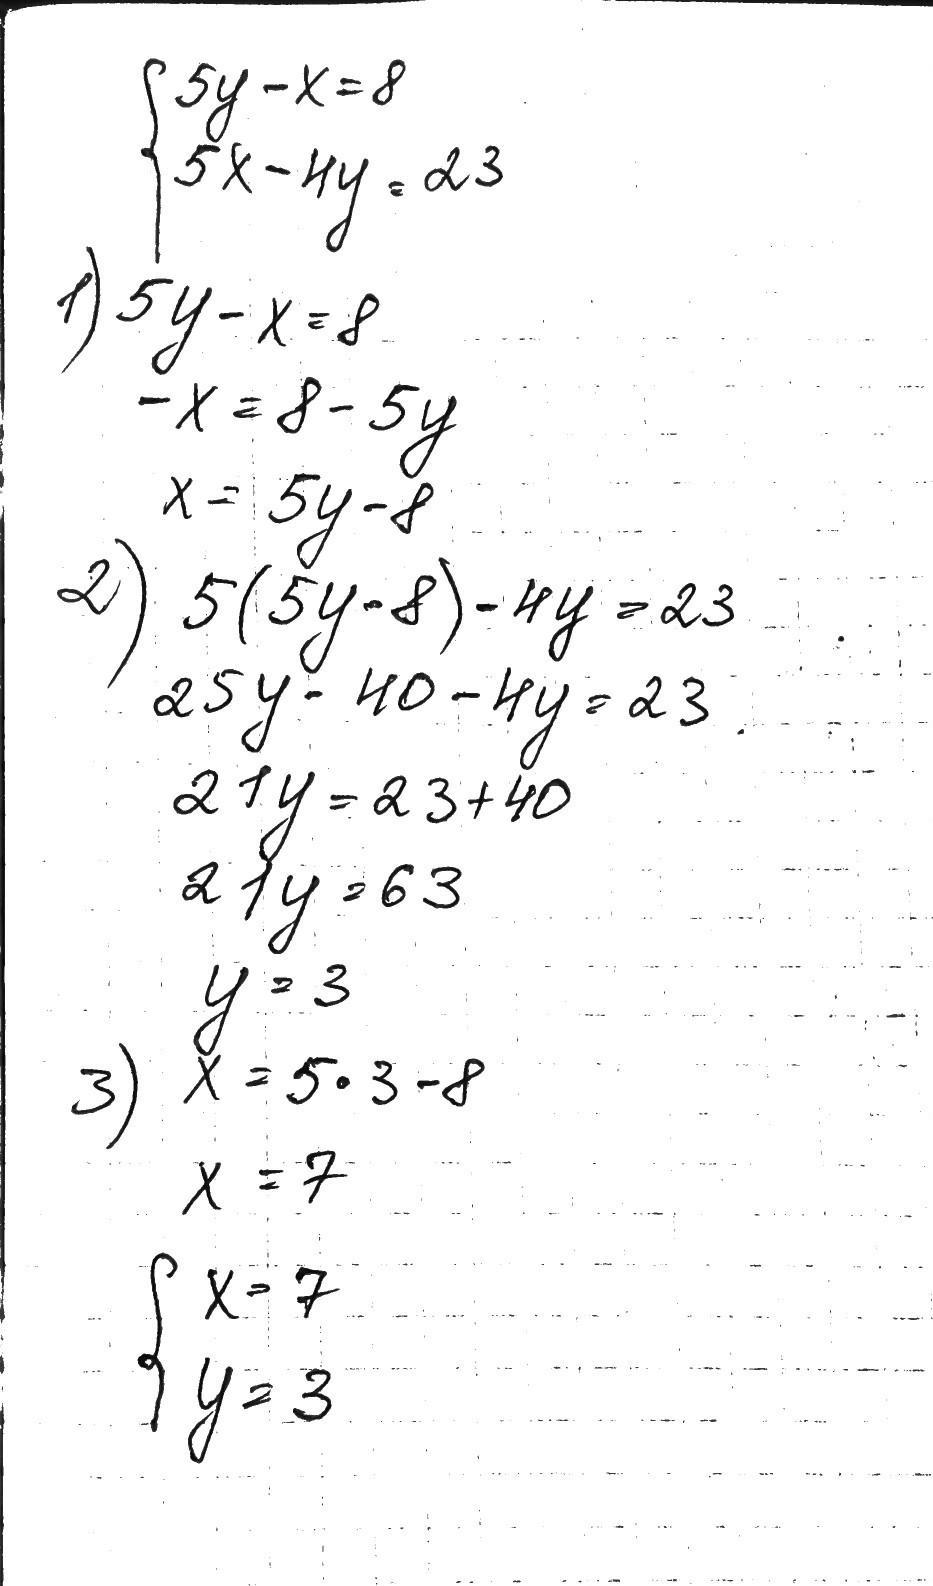 { 5y - x = 8
5x - 4y = 23
1) 5y - x = 8
-x = 8 - 5y
x = 5y - 8
2) 5(5y - 8) - 4y = 23
25y - 40 - 4y = 23
21y = 23 + 40
21y = 63
y = 3
3) x = 5 · 3 - 8
x = 7
{ x = 7
y = 3